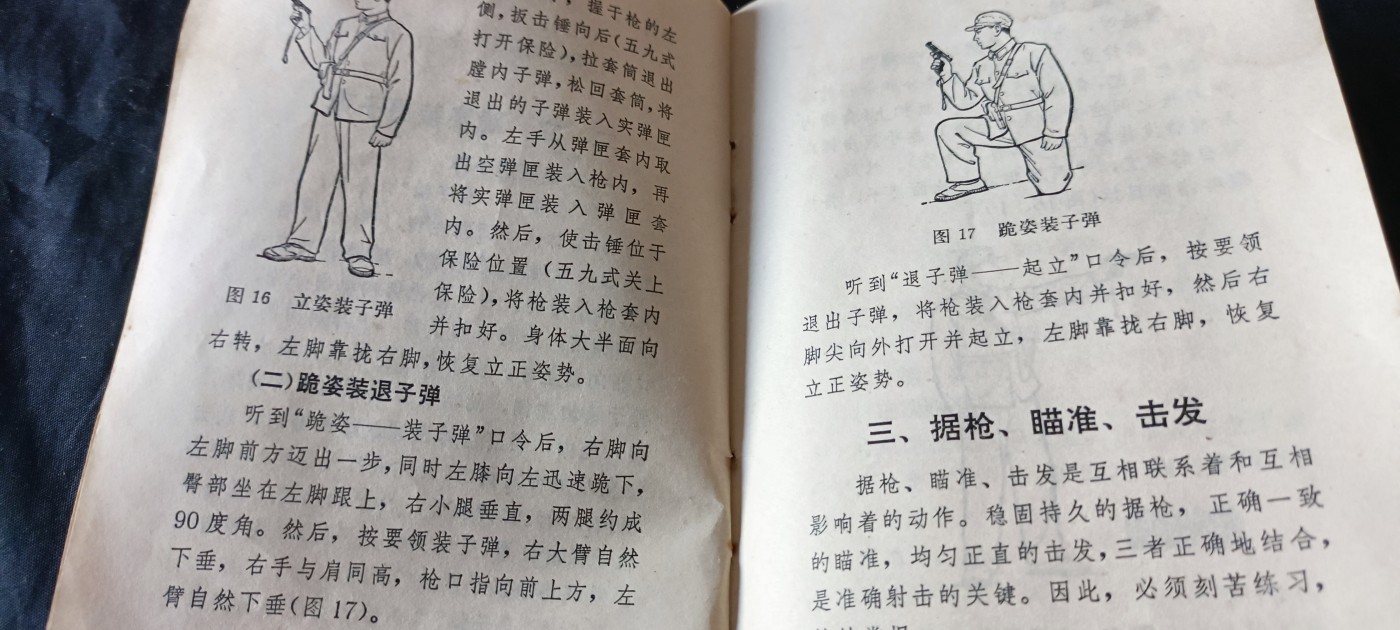 握于枪的左
侧，扳击锤向后(五九式
打开保险)，拉套筒退出
膛内子弹，松回套筒，将
退出的子弹装入实弹匣
内。左手从弹匣套内取
出空弹匣装入枪内，再
将实弹匣装入弹匣套
内。然后，使击锤位于
保险位置（五九式关上
保险)，将枪装入枪套内
并扣好。身体大半面向
图 16 立姿装子弹
右转，左脚靠拢右脚，恢复立正姿势。
(二)跪姿装退子弹
听到“跪姿——装子弹”口令后，右脚向
左脚前方迈出一步，同时左膝向左迅速跪下，
臀部坐在左脚跟上，右小腿垂直，两腿约成
90 度角。然后，按要领装子弹，右大臂自然
下垂，右手与肩同高，枪口指向前上方，左
臂自然下垂(图 17)。
图 17 跪姿装子弹
听到“退子弹——起立”口令后，按要领
退出子弹，将枪装入枪套内并扣好，然后右
脚尖向外打开并起立，左脚靠拢右脚，恢复
立正姿势。
三、据枪、瞄准、击发
据枪、瞄准、击发是互相联系着和互相
影响着的动作。稳固持久的据枪，正确一致
的瞄准，均匀正直的击发，三者正确地结合，
是准确射击的关键。因此，必须刻苦练习，